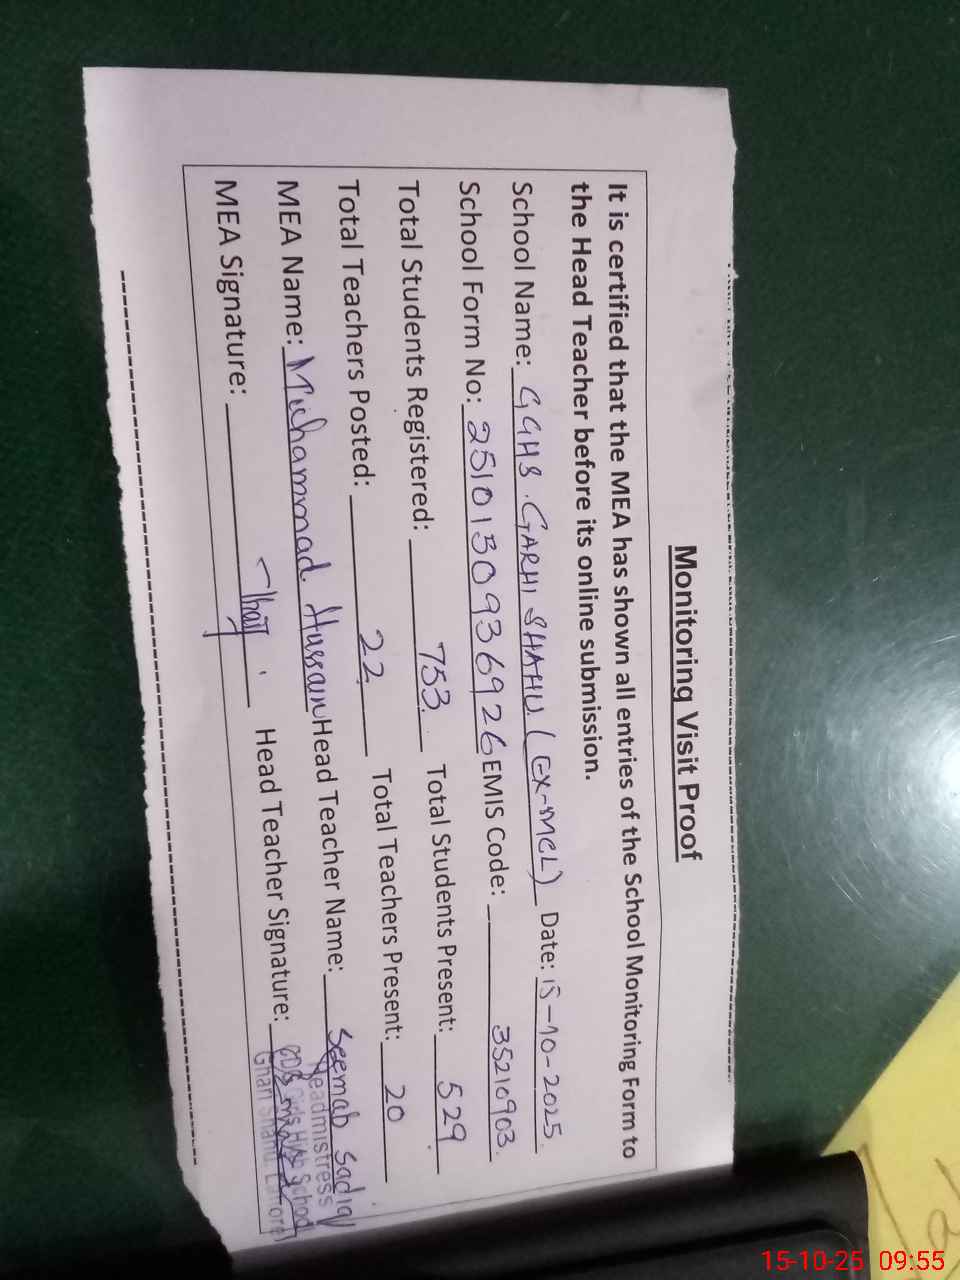 Monitoring Visit Proof
It is certified that the MEA has shown all entries of the School Monitoring Form to
the Head Teacher before its online submission.
School Name: GGHS. GARHI SHAHU. (EX-MCL) Date: 15-10-2025.
School Form No: 2510130936926 EMIS Code: 35210903.
Total Students Registered: 753. Total Students Present: 529.
Total Teachers Posted: 22. Total Teachers Present: 20
MEA Name: Muhammad Hussain Head Teacher Name: Seemab Sadiq
MEA Signature: Head Teacher Signature:
Headmistress
Girls High School
Lahore
15-10-25 09:55